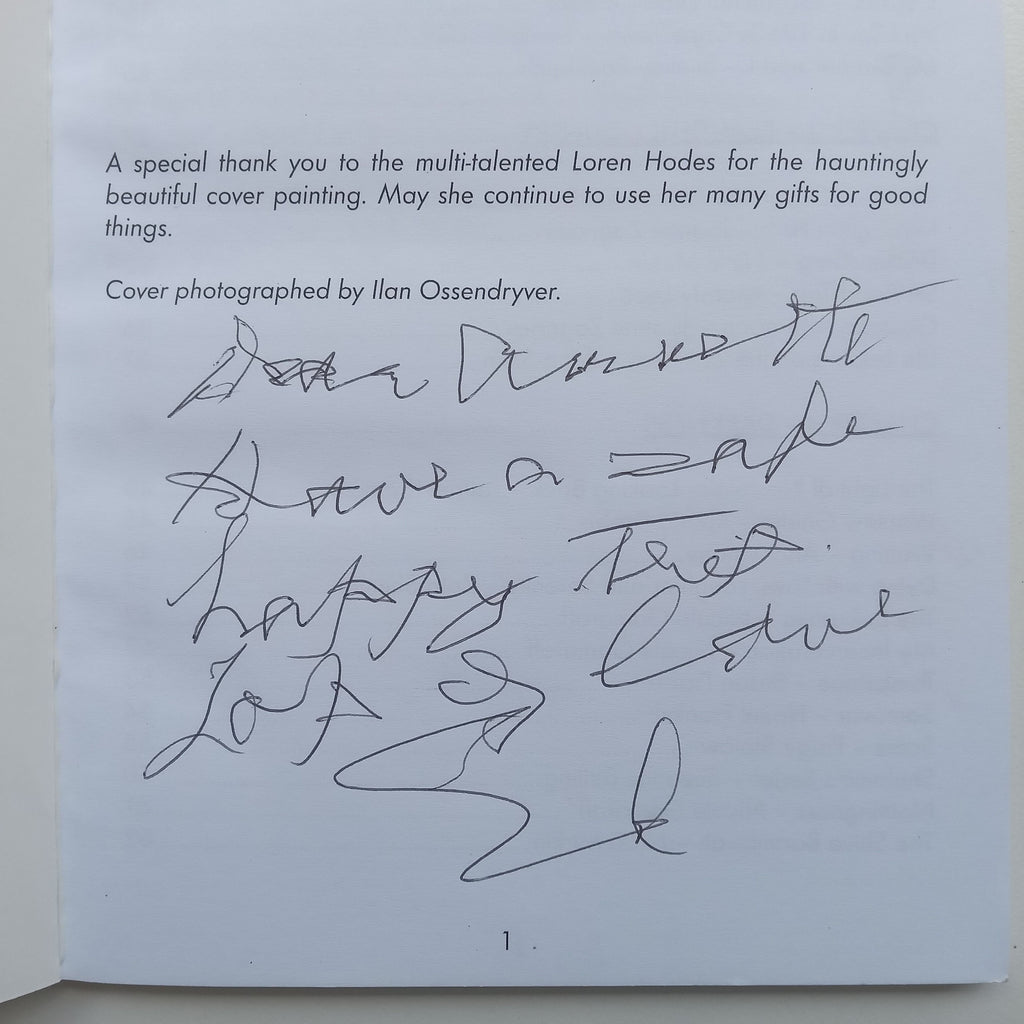 A special thank you to the multi-talented Loren Hodes for the hauntingly
beautiful cover painting. May she continue to use her many gifts for good
things.
Cover photographed by Ilan Ossendryver.
have a safe
happy
Lots of love
1